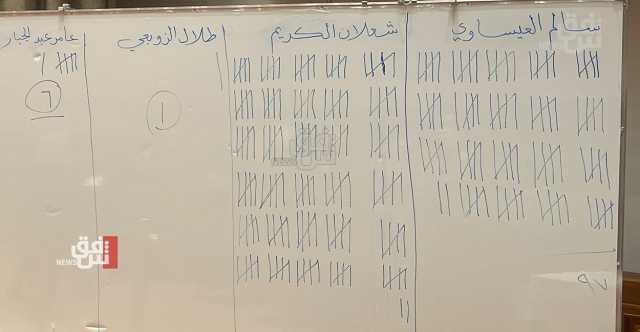 سالم العيساوي
شعلان الكريم
طلال الزوبعي
عامر عبد الجبار
٩٧
١
٦
شفق
NEWS
شفق
شفق